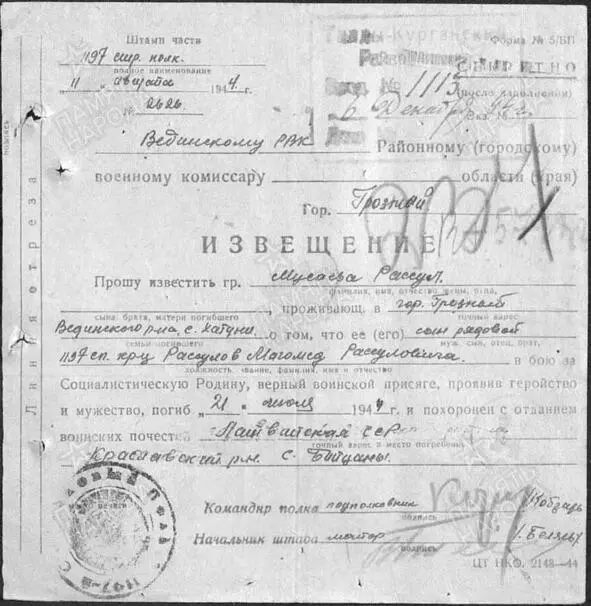 Штамп части
1197 стр. полк.
полное наименование
11 " августа 1944 г.
№ 2626
Талды-Курганский
Вход. № 1115
6 Декабря
Форма № 5/БП
СЕКРЕТНО
(после заполнения)
Вединскому РВК Районному (городскому)
военному комиссару области (края)
Гор. Грозный
ИЗВЕЩЕНИЕ
Прошу известить гр. Мусаева Рассул.
фамилия, имя, отчество жены, отца,
, проживающ. в гор. Грозный
сына, брата, матери погибшего точный адрес
Вединского р-на с. Хатуни о том, что ее (его) сын рядовой
семьи погибшего муж, сын, отец, брат,
1197 сп. кр-ц Рассулов Магомед Рассулович. в бою за
должность, звание, фамилия, имя и отчество
Социалистическую Родину, верный воинской присяге, проявив геройство
и мужество, погиб " 21 " июля 1944 г. и похоронен с отданием
воинских почестей Латвийская ССР
точный адрес и место погребения
Краславский р-н. с.
Командир полка подполковник Кобзарь
подпись
Начальник штаба майор
подпись
ЦТ НКО. 2148—44
Линия отреза
подпись